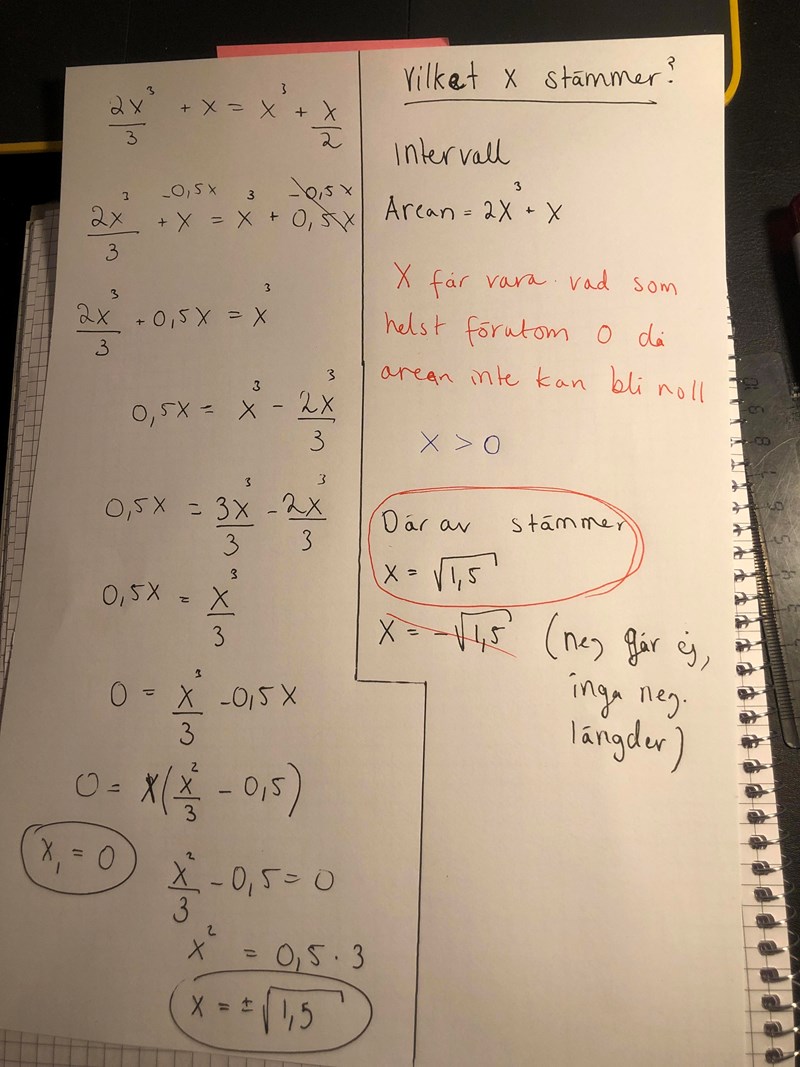 2x³/3 + x = x³ + x/2
-0,5x -0,5x
2x³/3 + x = x³ + 0,5x
2x³/3 + 0,5x = x³
0,5x = x³ - 2x³/3
0,5x = 3x³/3 - 2x³/3
0,5x = x³/3
0 = x³/3 - 0,5x
0 = x(x²/3 - 0,5)
x₁ = 0
x²/3 - 0,5 = 0
x² = 0,5 · 3
x = ±√1,5
Vilket x stämmer?
Intervall
Arean = 2x³ + x
X får vara vad som
helst förutom 0 då
arean inte kan bli noll
x > 0
Där av stämmer
x = √1,5
x = -√1,5 (neg går ej,
inga neg.
längder)